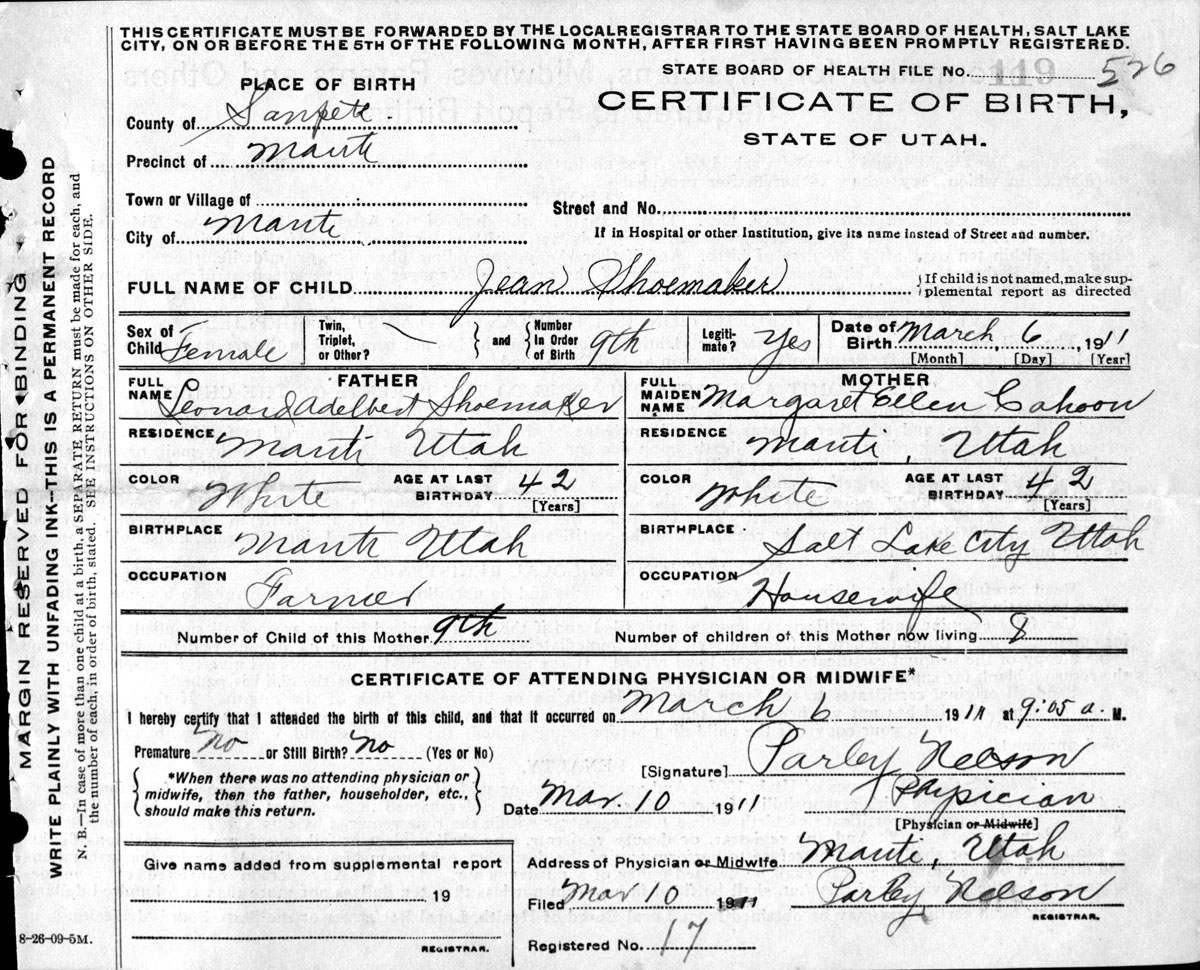 THIS CERTIFICATE MUST BE FORWARDED BY THE LOCAL REGISTRAR TO THE STATE BOARD OF HEALTH, SALT LAKE
CITY, ON OR BEFORE THE 5TH OF THE FOLLOWING MONTH, AFTER FIRST HAVING BEEN PROMPTLY REGISTERED.
STATE BOARD OF HEALTH FILE No. 119 526
PLACE OF BIRTH
CERTIFICATE OF BIRTH,
STATE OF UTAH.
County of Sanpete
Precinct of Manti
Town or Village of
City of Manti
Street and No.
If in Hospital or other Institution, give its name instead of Street and number.
FULL NAME OF CHILD Jean Shoemaker
{If child is not named, make sup-
plemental report as directed
Sex of Child Female
Twin, Triplet, or Other?
and
Number In Order of Birth 9th
Legiti-mate? Yes
Date of Birth March 6, 1911
[Month] [Day] [Year]
FATHER
FULL NAME Leonard Adelbert Shoemaker
RESIDENCE Manti Utah
COLOR White
AGE AT LAST BIRTHDAY 42
[Years]
BIRTHPLACE Manti Utah
OCCUPATION Farmer
MOTHER
FULL MAIDEN NAME Margaret Ellen Cahoon
RESIDENCE Manti, Utah
COLOR White
AGE AT LAST BIRTHDAY 42
[Years]
BIRTHPLACE Salt Lake City Utah
OCCUPATION Housewife
Number of Child of this Mother 9th
Number of children of this Mother now living 8
CERTIFICATE OF ATTENDING PHYSICIAN OR MIDWIFE*
I hereby certify that I attended the birth of this child, and that it occurred on March 6 1911 at 9:05 a. M.
Premature No or Still Birth? No (Yes or No)
*When there was no attending physician or
midwife, then the father, householder, etc.,
should make this return.
[Signature] Parley Nelson
Date Mar. 10 1911
Physician
[Physician or Midwife]
Address of Physician or Midwife Manti, Utah
Filed Mar 10 1911 Parley Nelson
REGISTRAR.
Registered No. 17
Give name added from supplemental report
19
REGISTRAR.
8-26-09-5M.
MARGIN RESERVED FOR BINDING
WRITE PLAINLY WITH UNFADING INK--THIS IS A PERMANENT RECORD
N. B.—In case of more than one child at a birth, a SEPARATE RETURN must be made for each, and
the number of each, in order of birth, stated. SEE INSTRUCTIONS ON OTHER SIDE.